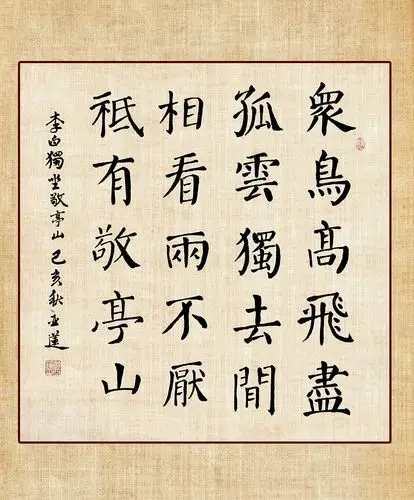 衆鳥髙飛盡
孤雲獨去間
相看兩不厭
祗有敬亭山
李白獨坐敬亭山己亥秋亚莲